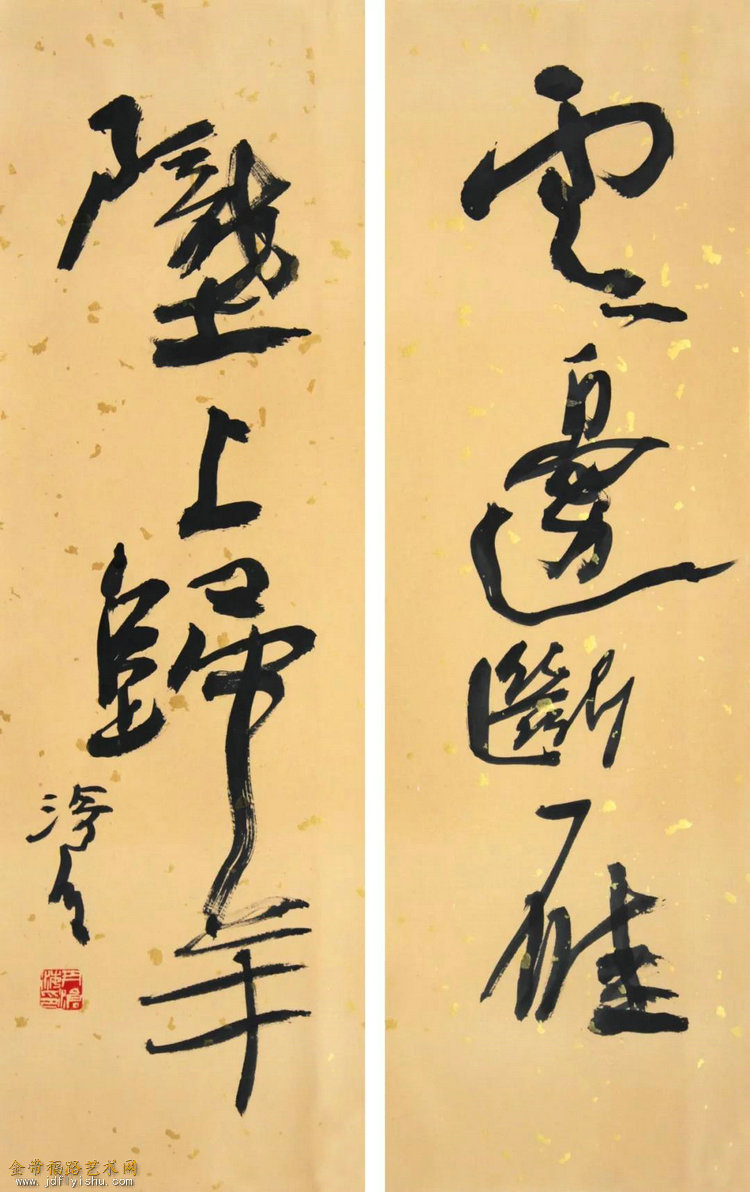 雲邊斷雁
隴上歸羊
金带福路艺术网
www.jdflyishu.com